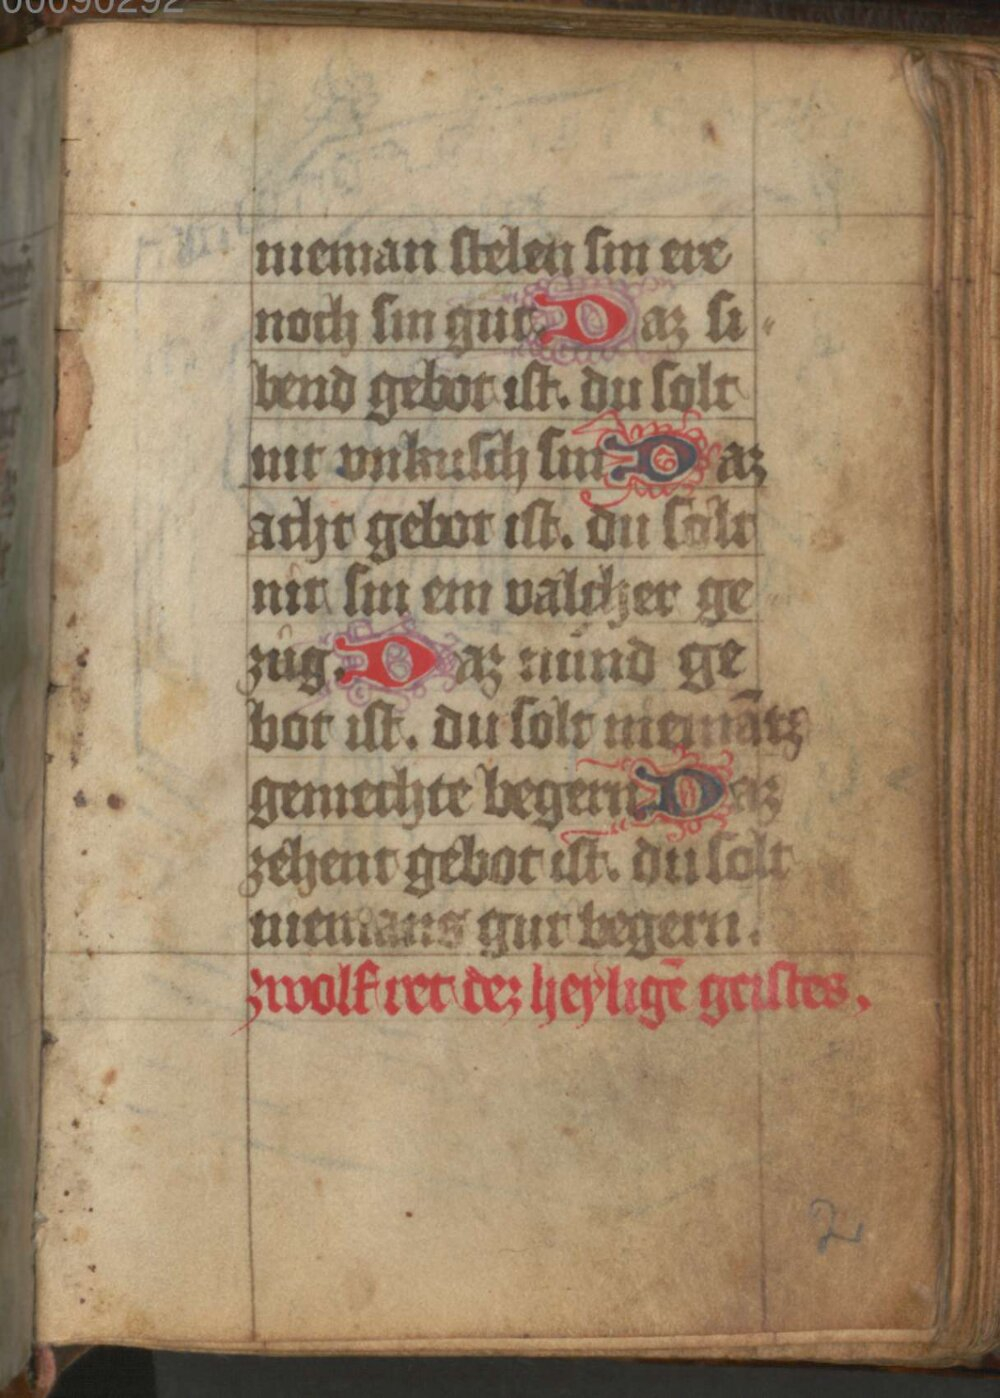 00090292
nieman stelen sin ere
noch sin gut. Daz si
bend gebot ist. du solt
nit vnkusch sin Daz
acht gebot ist. du solt
nit sin ein valscher ge
zúg. Daz núnd ge
bot ist. du solt niemātz
gemechte begern Daz
zehent gebot ist. du solt
niemans gut begern.
zwolf ret dez heyligē geistes.
2